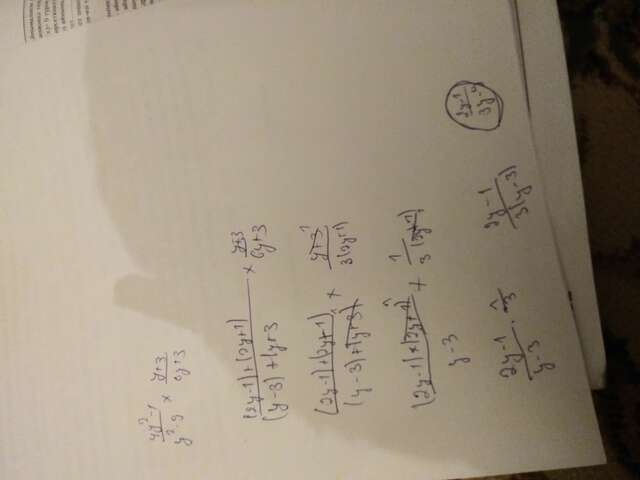 4y²-1/y²-9 × y+3/6y+3
(2y-1)+(2y+1)/(y-3)+(y+3 × y+3/6y+3
(2y-1)+(2y+1)/(y-3)+(y+3)¹ × y+3¹/3(2y+1)
(2y-1)×(2y+1)¹/y-3 + 1/3(2y+1)
2y-1/y-3 · 1/3 2y-1/3(y-3) 2y-1/3y-9